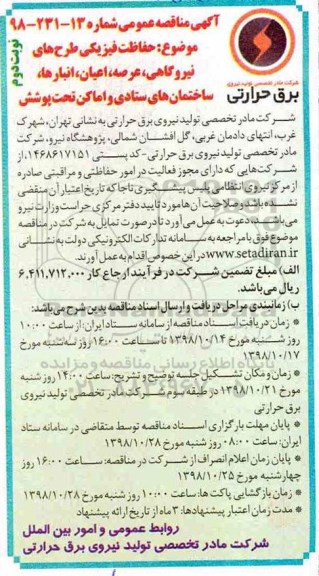 آگهی مناقصه عمومی شماره ۱۳-۲۳۱-۹۸
موضوع: حفاظت فیزیکی طرح‌های
نیروگاهی، عرصه، اعیان، انبارها،
ساختمان‌های ستادی و اماکن تحت پوشش
نوبت دوم
شرکت مادر تخصصی تولید نیروی
برق حرارتی
شرکت مادر تخصصی تولید نیروی برق حرارتی به نشانی تهران، شهرک
غرب، انتهای دادمان غربی، گل افشان شمالی، پژوهشگاه نیرو، شرکت
مادر تخصصی تولید نیروی برق حرارتی- کد پستی ۱۴۶۸۶۱۷۱۵۱، از
شرکت‌هایی که دارای مجوز فعالیت در امور حفاظتی و مراقبتی صادره
از مرکز نیروی انتظامی پلیس پیشگیری ناجا که تاریخ اعتبار آن منقضی
نشده باشد و صلاحیت آن‌ها مورد تایید دفتر مرکزی حراست وزارت نیرو
می‌باشد، دعوت به عمل می‌آورد تا در صورت تمایل به شرکت در مناقصه
موضوع فوق با مراجعه به سامانه تدارکات الکترونیکی دولت به نشانی
www.setadiran.ir در این خصوص اقدام به عمل آورند.
الف) مبلغ تضمین شرکت در فرآیند ارجاع کار ۶.۴۱۱.۷۱۲.۰۰۰
ریال می‌باشد.
ب) زمانبندی مراحل دریافت و ارسال اسناد مناقصه بدین شرح می‌باشد:
* زمان دریافت اسناد مناقصه از سامانه ستاد ایران: از ساعت ۱۰:۰۰
روز شنبه مورخ ۱۳۹۸/۱۰/۱۴ تا ساعت ۱۶:۰۰ روز سه شنبه مورخ
۱۳۹۸/۱۰/۱۷
* زمان و مکان تشکیل جلسه توضیح و تشریح: ساعت ۱۴:۰۰ روز شنبه
مورخ ۱۳۹۸/۱۰/۲۱ در طبقه سوم شرکت مادر تخصصی تولید نیروی
برق حرارتی
* پایان مهلت بارگزاری اسناد مناقصه توسط متقاضی در سامانه ستاد
ایران: ساعت ۰۸:۰۰ روز شنبه مورخ ۱۳۹۸/۱۰/۲۸
* پایان زمان اعلام انصراف از شرکت در مناقصه: ساعت ۱۶:۰۰ روز
چهارشنبه مورخ ۱۳۹۸/۱۰/۲۵
* زمان بازگشایی پاکت‌ها: ساعت ۱۰:۰۰ روز شنبه مورخ ۱۳۹۸/۱۰/۲۸
* مدت زمان اعتبار پیشنهادها: ۳ ماه از تاریخ ارائه پیشنهاد
روابط عمومی و امور بین الملل
شرکت مادر تخصصی تولید نیروی برق حرارتی